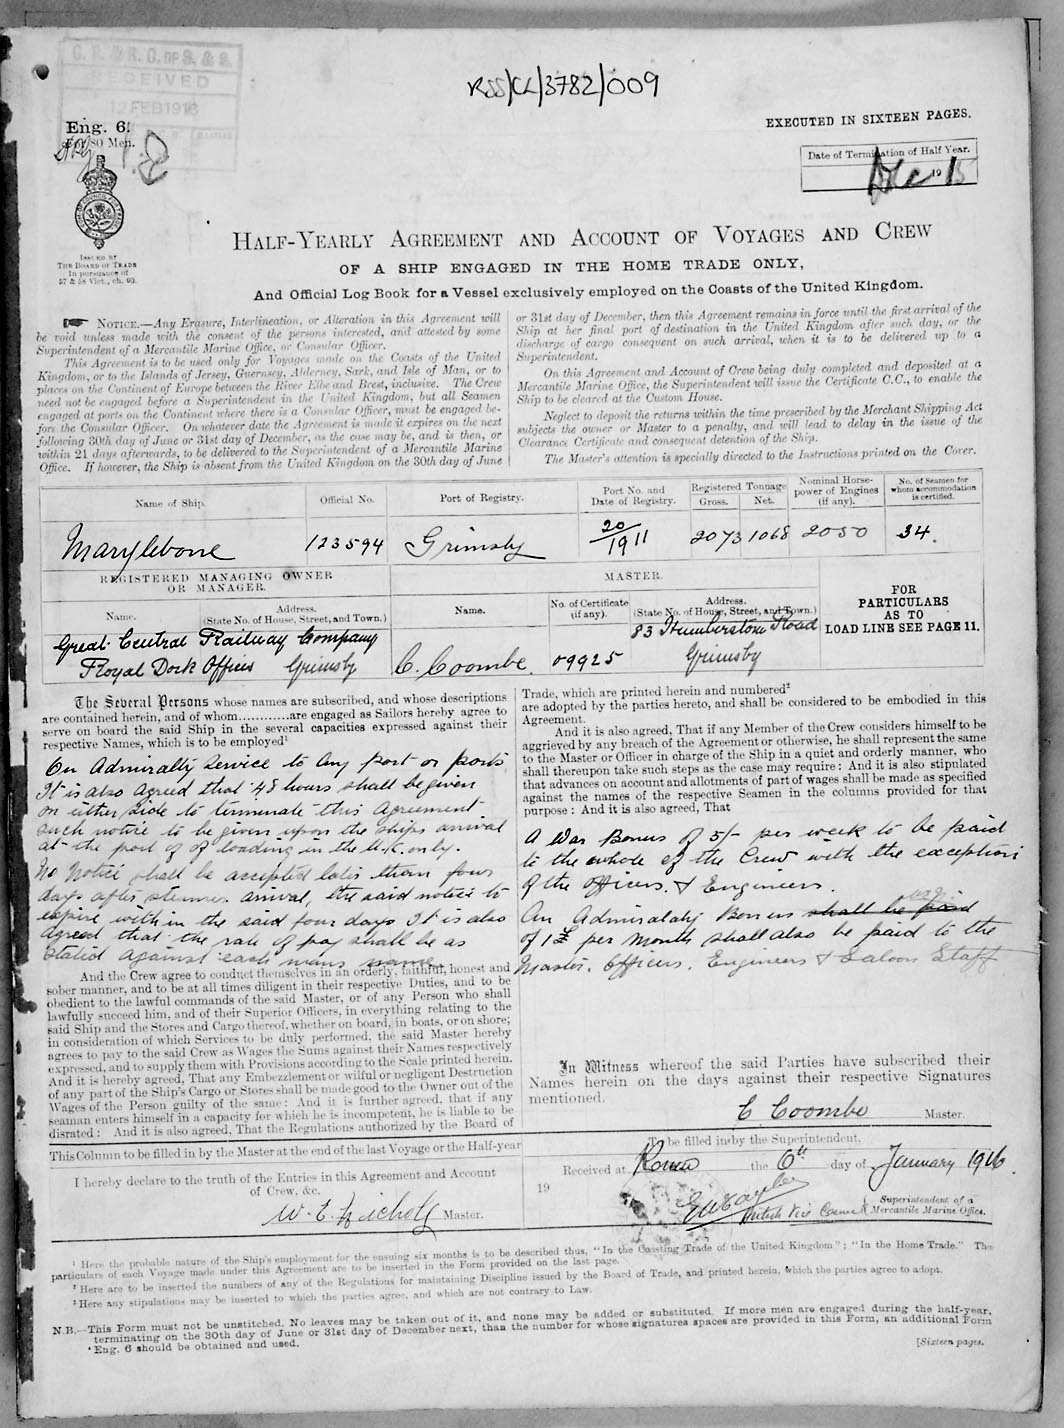 RSS/CL/3782/009
C. R. & R. O. OF S. & S.
RECEIVED
12 FEB 1916
Eng. 6.
For 80 Men.
ISSUED BY
THE BOARD OF TRADE
In pursuance of
57 & 58 Vict., ch. 60.
EXECUTED IN SIXTEEN PAGES.
Date of Termination of Half Year.
Dec 1915
HALF-YEARLY AGREEMENT AND ACCOUNT OF VOYAGES AND CREW
OF A SHIP ENGAGED IN THE HOME TRADE ONLY,
And Official Log Book for a Vessel exclusively employed on the Coasts of the United Kingdom.
NOTICE.—Any Erasure, Interlineation, or Alteration in this Agreement will
be void unless made with the consent of the persons interested, and attested by some
Superintendent of a Mercantile Marine Office, or Consular Officer.
This Agreement is to be used only for Voyages made on the Coasts of the United
Kingdom, or to the Islands of Jersey, Guernsey, Alderney, Sark, and Isle of Man, or to
places on the Continent of Europe between the River Elbe and Brest, inclusive. The Crew
need not be engaged before a Superintendent in the United Kingdom, but all Seamen
engaged at ports on the Continent where there is a Consular Officer, must be engaged be-
fore the Consular Officer. On whatever date the Agreement is made it expires on the next
following 30th day of June or 31st day of December, as the case may be, and is then, or
within 21 days afterwards, to be delivered to the Superintendent of a Mercantile Marine
Office. If however, the Ship is absent from the United Kingdom on the 30th day of June
or 31st day of December, then this Agreement remains in force until the first arrival of the
Ship at her final port of destination in the United Kingdom after such day, or the
discharge of cargo consequent on such arrival, when it is to be delivered up to a
Superintendent.
On this Agreement and Account of Crew being duly completed and deposited at a
Mercantile Marine Office, the Superintendent will issue the Certificate C.C., to enable the
Ship to be cleared at the Custom House.
Neglect to deposit the returns within the time prescribed by the Merchant Shipping Act
subjects the owner or Master to a penalty, and will lead to delay in the issue of the
Clearance Certificate and consequent detention of the Ship.
The Master's attention is specially directed to the Instructions printed on the Cover.
Name of Ship. Official No. Port of Registry. Port No. and Date of Registry. Registered Tonnage Gross. Net. Nominal Horse-power of Engines (if any). No. of Seamen for whom accommodation is certified.
Marylebone 123594 Grimsby 20/1911 2073 1068 2050 34.
REGISTERED MANAGING OWNER
OR MANAGER.
MASTER.
Name. Address. (State No. of House, Street, and Town.) Name. No. of Certificate (if any). Address. (State No. of House, Street, and Town.)
FOR
PARTICULARS
AS TO
LOAD LINE SEE PAGE 11.
Great Central Railway Company
Royal Dock Offices Grimsby
C. Coombe. 09925 83 Humberstone Road
Grimsby
The Several Persons whose names are subscribed, and whose descriptions
are contained herein, and of whom............are engaged as Sailors hereby agree to
serve on board the said Ship in the several capacities expressed against their
respective Names, which is to be employed¹
On Admiralty Service to any port or ports
It is also agreed that 48 hours shall be given
on either side to terminate this agreement
such notice to be given upon the ships arrival
at the port of of loading in the U.K. only.
No Notice shall be accepted later than four
days after steamers arrival, the said notice to
expire within the said four days It is also
agreed that the rate of pay shall be as
stated against each mans name
And the Crew agree to conduct themselves in an orderly, faithful, honest and
sober manner, and to be at all times diligent in their respective Duties, and to be
obedient to the lawful commands of the said Master, or of any Person who shall
lawfully succeed him, and of their Superior Officers, in everything relating to the
said Ship and the Stores and Cargo thereof, whether on board, in boats, or on shore;
in consideration of which Services to be duly performed, the said Master hereby
agrees to pay to the said Crew as Wages the Sums against their Names respectively
expressed, and to supply them with Provisions according to the Scale printed herein.
And it is hereby agreed, That any Embezzlement or wilful or negligent Destruction
of any part of the Ship's Cargo or Stores shall be made good to the Owner out of the
Wages of the Person guilty of the same: And it is further agreed, that if any
seaman enters himself in a capacity for which he is incompetent, he is liable to be
disrated: And it is also agreed, That the Regulations authorized by the Board of
Trade, which are printed herein and numbered²
are adopted by the parties hereto, and shall be considered to be embodied in this
Agreement.
And it is also agreed, That if any Member of the Crew considers himself to be
aggrieved by any breach of the Agreement or otherwise, he shall represent the same
to the Master or Officer in charge of the Ship in a quiet and orderly manner, who
shall thereupon take such steps as the case may require: And it is also stipulated
that advances on account and allotments of part of wages shall be made as specified
against the names of the respective Seamen in the columns provided for that
purpose: And it is also agreed, That
A War Bonus of 5/- per week to be paid
to the whole of the Crew with the exception
of the Officers. & Engineers.
An Admiralaty Bonus shall be paid
of 1£ per month shall also be paid to the
Master. Officers. Engineers & Saloon Staff
In Witness whereof the said Parties have subscribed their
Names herein on the days against their respective Signatures
mentioned.
C Coombe Master.
This Column to be filled in by the Master at the end of the last Voyage or the Half-year
I hereby declare to the truth of the Entries in this Agreement and Account
of Crew, &c.
Master.
To be filled in by the Superintendent.
Received at Rouen the 6th day of January 1916.
19
British Vice Consul
Superintendent of a
Mercantile Marine Office.
¹ Here the probable nature of the Ship's employment for the ensuing six months is to be described thus, "In the Coasting Trade of the United Kingdom"; "In the Home Trade." The
particulars of each Voyage made under this Agreement are to be inserted in the Form provided on the last page.
² Here are to be inserted the numbers of any of the Regulations for maintaining Discipline issued by the Board of Trade, and printed herein, which the parties agree to adopt.
³ Here any stipulations may be inserted to which the parties agree, and which are not contrary to Law.
N.B.—This Form must not be unstitched. No leaves may be taken out of it, and none may be added or substituted. If more men are engaged during the half-year,
terminating on the 30th day of June or 31st day of December next, than the number for whose signatures spaces are provided in this Form, an additional Form
Eng. 6 should be obtained and used.
[Sixteen pages.